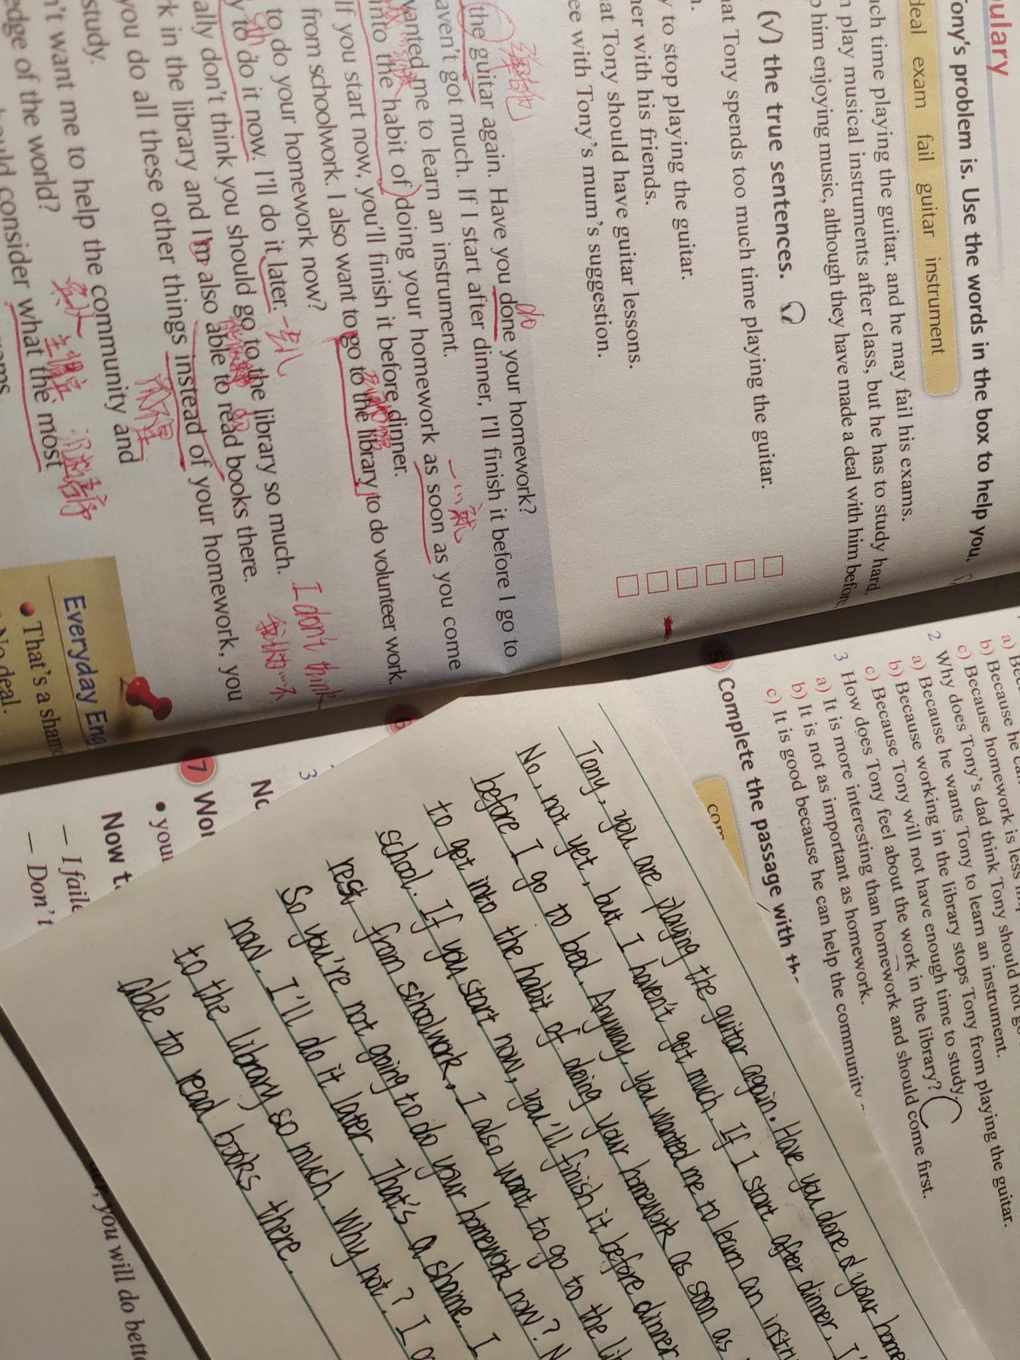 ulary
Tony's problem is. Use the words in the box to help you.
deal exam fail guitar instrument
ch time playing the guitar, and he may fail his exams.
play musical instruments after class, but he has to study hard
him enjoying music, although they have made a deal with him before
(√) the true sentences.
at Tony spends too much time playing the guitar.
to stop playing the guitar.
her with his friends.
at Tony should have guitar lessons.
ee with Tony's mum's suggestion.
the guitar again. Have you done your homework?
do
aven't got much. If I start after dinner, I'll finish it before I go to
wanted me to learn an instrument.
into the habit of doing your homework as soon as you come
一…就
If you start now, you'll finish it before dinner.
from schoolwork. I also want to go to the library to do volunteer work.
to do your homework now?
to do it now. I'll do it later.
I don't think
ally don't think you should go to the library so much.
k in the library and I'm also able to read books there.
you do all these other things instead of your homework, you
study.
n't want me to help the community and
edge of the world?
consider what the most
Everyday Eng
• That's a sham
No deal.
b) Because he can
c) Because homework is less
2 Why does Tony's dad think Tony should not g
a) Because he wants Tony to learn an instrument.
b) Because working in the library stops Tony from playing the guitar.
c) Because Tony will not have enough time to study.
3 How does Tony feel about the work in the library?
a) It is more interesting than homework.
b) It is not as important as homework and should come first.
c) It is good because he can help the community
Complete the passage with th
com
6
3
No
7 Wor
• your
Now t
— I faile
— Don't
, you will do bette
Tony, you are playing the guitar again. Have you done d your home
No, not yet, but I haven't got much. If I start after dinner, I'
before I go to bed. Anyway, you wanted me to learn an instru
to get into the habit of doing your homework as soon as
school. If you start now, you'll finish it before dinner
rest from schoolwork, I also want to go to the li
So you're not going to do your homework now? N
now. I'll do it later. That's a shame. I
to the library so much. Why not? I a
able to read books there.